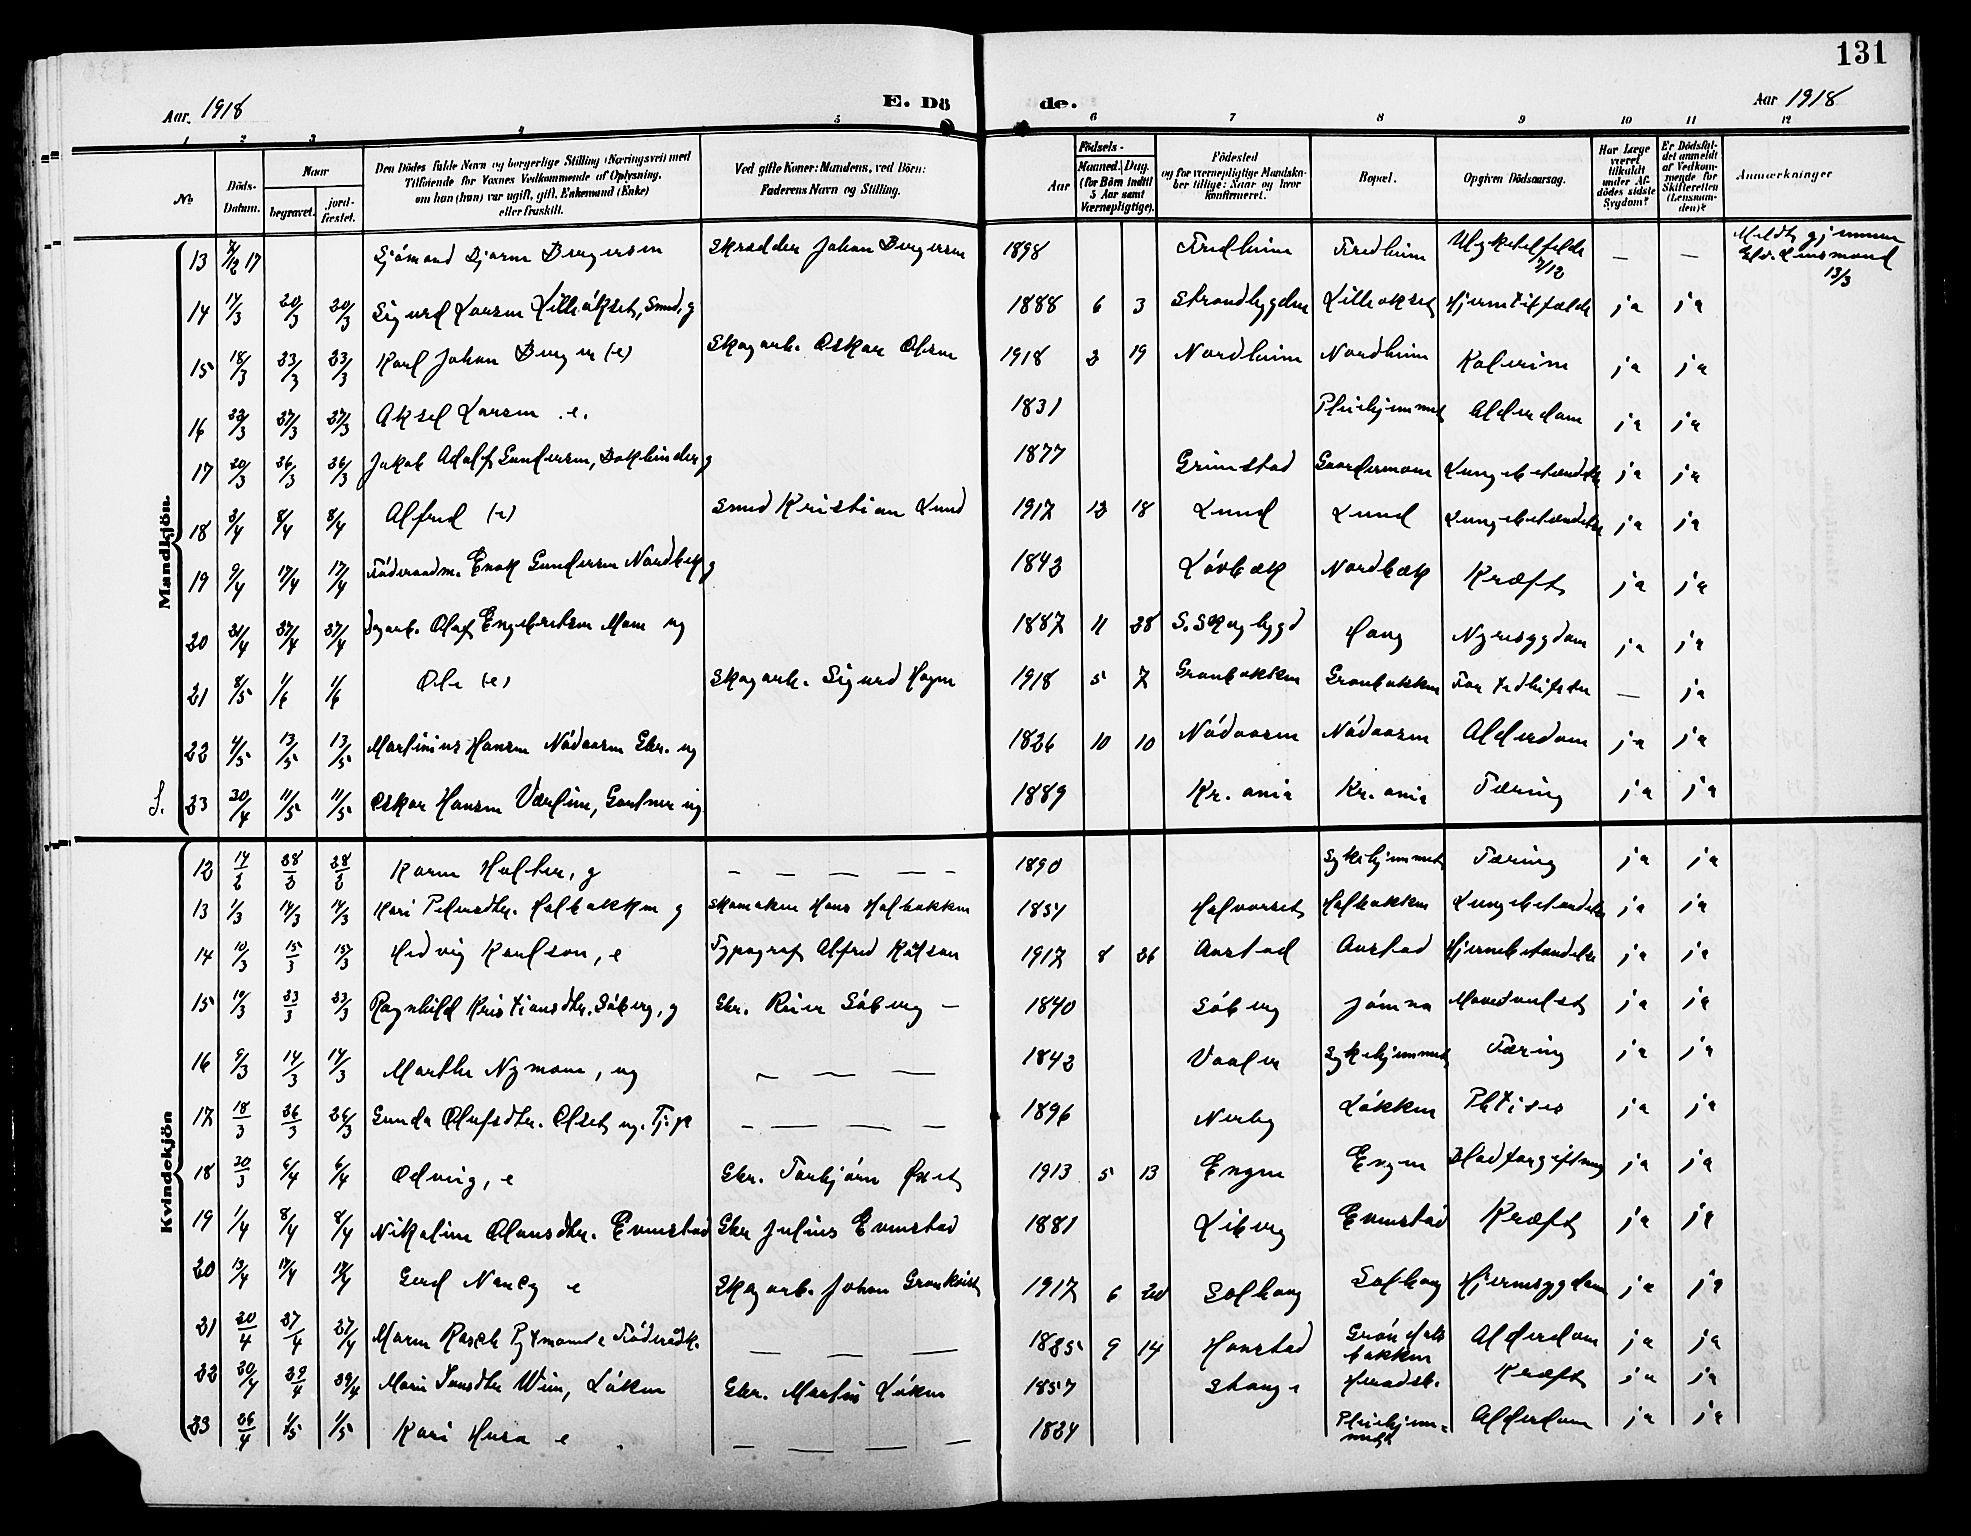 131
Aar. 1918
E. Dö
de.
Aar 1918
1 2 3 4 5 6 7 8 9 10 11 12
No
Döds-Datum.
Naar
begravet.
jord-fæstet.
Den Dödes fulde Navn og borgerlige Stilling (Næringsvei) med
Tilföiende for Voxnes Vedkommende af Oplysning,
om han (hun) var ugift, gift, Enkemand (Enke)
eller fraskilt.
Ved gifte Koner: Mandens, ved Börn:
Faderens Navn og Stilling.
Aar
Födsels-
Maaned. Dag.
(for Börn indtil
5 Aar samt
Værnepligtige).
Födested
og for værnepligtige Mandska-
ber tillige: Naar og hvor
konfirmeret.
Bopæl.
Opgiven Dödsaarsag.
Har Læge
været
tilkaldt
under Af-
dödes sidste
Sygdom?
Er Dödsfal-
det anmeldt
af Vedkom-
mende for
Skifteretten
(Lensman-
den)?
Anmærkninger
Mandkjön.
13 17 Sjömand Bjarne Bergersen Skrædder Johan Bergersen 1898 Fredheim Fredheim Ulykkestilfelde 7/12 — — Meldt gjennem Elv. Lensmand 13/3
14 17/3 20/3 20/3 Sigurd Larsen Lilleåkset, Smed, g 1888 6 3 Strandbygden Lilleokset Hjernetilfælde ja ja
15 18/3 23/3 23/3 Karl Johan Berger (e) Skogarb. Oskar Olsen 1918 2 19 Nordheim Nordheim Kolerine ja ja
16 22/3 27/3 27/3 Aksel Larsen .e. 1831 Pleiehjemmet Alderdom ja ja
17 20/3 26/3 26/3 Jakob Adolf Gundersen, Bokbinder g 1877 Grimstad Gaardermoen Lungebetændelse ja ja
18 3/4 8/4 8/4 Alfred (e) Smed Kristian Lund 1917 12 18 Lund Lund Lungebetændelse ja ja
19 9/4 17/4 17/4 Föderaadm. Enok Gundersen Nordbek g 1843 Lövbæk Nordbæk Kræft ja ja
20 21/4 27/4 27/4 Dagarb. Olaf Engebretsen Moen ug 1887 11 28 S. Skogbygd Haug Nyresygdom ja ja
21 8/5 1/6 1/6 Ole (e) Skogarb. Sigurd Hagen 1918 5 7 Granbakken Granbakken For tidligfödt — ja
22 4/5 13/5 13/5 Martinius Hansen Nödaasen Gbr. ug 1826 10 10 Nödaasen Nödaasen Alderdom ja ja
S. 23 30/4 11/5 11/5 Oskar Hansen Værlien, Gartner ug 1889 Kr.ania Kr.ania Tæring ja ja
Kvindekjön
12 14/2 28/2 28/2 Karen Holter, g — — — — — 1890 Sykehjemmet Tæring ja ja
13 1/3 14/3 14/3 Kari Pedersdtr. Holbakken g Skomaker Hans Holbakken 1851 Halvorset Holbakken Lungebetændelse ja ja
14 10/3 15/3 15/3 Hedvig Karlson, e Typograf Alfred Karlson 1917 8 26 Aarstad Aarstad Hjernebetændelse ja ja
15 10/3 23/3 23/3 Ragnhild Kristiansdtr. Söberg, g Gbr. Peier Söberg — 1840 Söberg Jömna Mavesvulst ja ja
16 9/3 14/3 14/3 Marthe Nymoen, ug — — — 1842 Vaaler Sykehjemmet Tæring ja ja
17 18/3 26/3 26/3 Gunda Olufsdtr. Olset ug. Tj.p — — — — 1896 Nerby Lökken Phtisis ja ja
18 30/3 6/4 6/4 Odveig, e Gbr. Torbjörn Öxset 1913 5 13 Engen Engen Blodforgiftning ja ja
19 1/4 8/4 8/4 Nikoline Olausdtr. Evenstad Gbr Julius Evenstad 1881 Liberg Evenstad Kræft ja ja
20 13/4 17/4 17/4 Gerd Nancy e Skogarb. Johan Grankvist 1917 6 20 Solhaug Solhaug Hjernesygdom ja ja
21 20/4 27/4 27/4 Maren Rasch Pytmoen e Föderådk. — — — 1825 9 14 Hanstad Gröndalsbakken Alderdom ja ja
22 20/4 29/4 29/4 Marie Iversdtr Wien, Löken Gbr. Martin Löken 1857 Stange Heradsb. Kræft ja ja
23 26/4 1/5 1/5 Kari Husa e — — — — 1824 Pleiehjemmet Alderdom ja ja